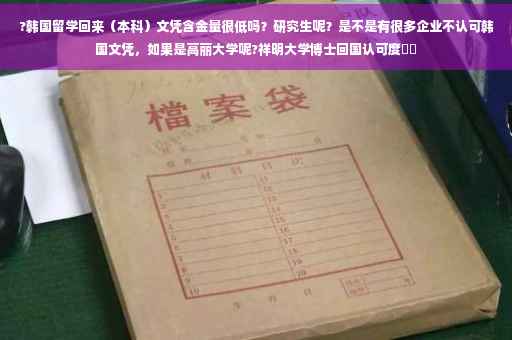 ?韩国留学回来（本科）文凭含金量很低吗？研究生呢？是不是有很多企业不认可韩
国文凭，如果是高丽大学呢?祥明大学博士回国认可度
檔案袋
材料目次
1
2
3
4
5
6
7
8
9
10
11
12
13
14
15
16
17
18
19
20
年 月 日